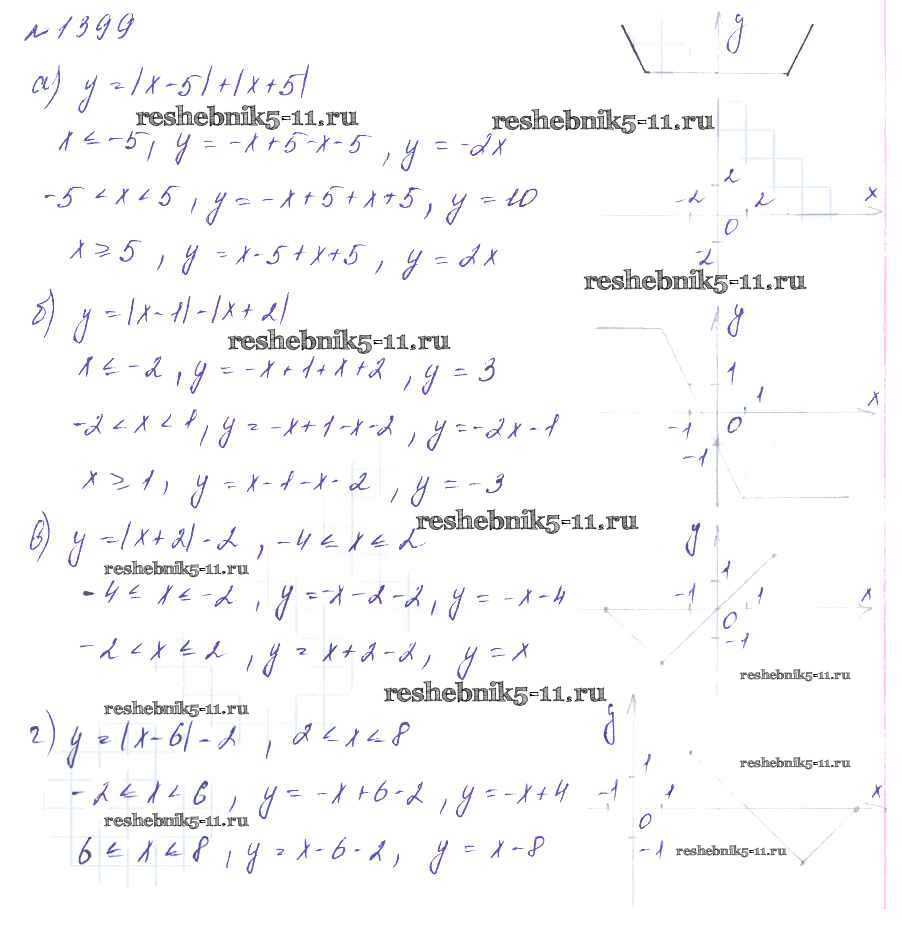 №1399
а) y = |x-5|+|x+5|
reshebnik5-11.ru
reshebnik5-11.ru
x ≤ -5, y = -x+5-x-5, y = -2x
-5 < x < 5, y = -x+5+x+5, y = 10
x ≥ 5, y = x-5+x+5, y = 2x
y
2
-2
2
x
0
-2
reshebnik5-11.ru
б) y = |x-1|-|x+2|
reshebnik5-11.ru
x ≤ -2, y = -x+1+x+2, y = 3
-2 < x < 1, y = -x+1-x-2, y = -2x-1
x ≥ 1, y = x-1-x-2, y = -3
y
1
1
x
-1
0
-1
reshebnik5-11.ru
в) y = |x+2|-2, -4 ≤ x ≤ 2
reshebnik5-11.ru
-4 ≤ x ≤ -2, y = -x-2-2, y = -x-4
-2 < x ≤ 2, y = x+2-2, y = x
y
1
-1
1
x
0
-1
reshebnik5-11.ru
reshebnik5-11.ru
reshebnik5-11.ru
г) y = |x-6|-2, 2 < x < 8
-2 ≤ x < 6, y = -x+6-2, y = -x+4
reshebnik5-11.ru
6 ≤ x ≤ 8, y = x-6-2, y = x-8
y
reshebnik5-11.ru
1
-1
1
x
0
-1
reshebnik5-11.ru